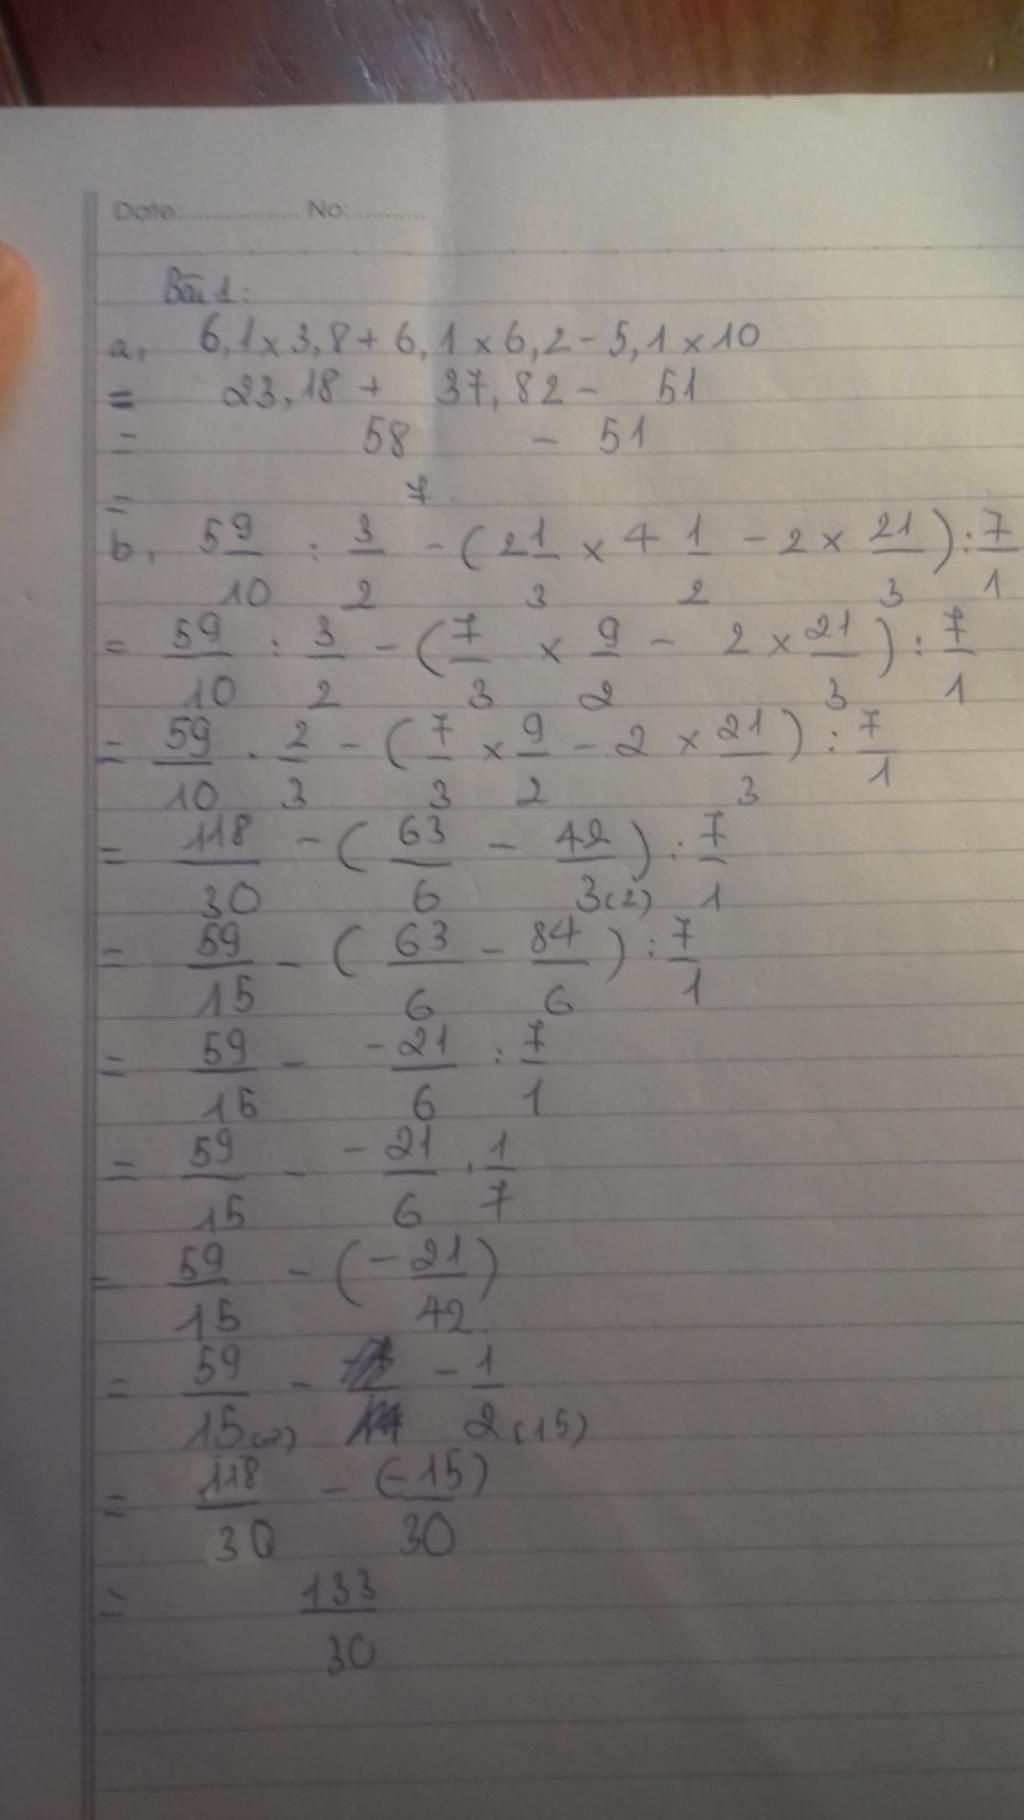 Date: No:
Bài 1:
a, 6,1 x 3,8 + 6,1 x 6,2 - 5,1 x 10
= 23,18 + 37,82 - 51
= 58 - 51
= 7
b, 59/10 : 3/2 - (2 1/3 x 4 1/2 - 2 x 21/3) : 7/1
= 59/10 : 3/2 - (7/3 x 9/2 - 2 x 21/3) : 7/1
= 59/10 . 2/3 - (7/3 x 9/2 - 2 x 21/3) : 7/1
= 118/30 - (63/6 - 42/3(2)) : 7/1
= 59/15 - (63/6 - 84/6) : 7/1
= 59/15 - -21/6 : 7/1
= 59/15 - -21/6 . 1/7
= 59/15 - (-21/42)
= 59/15(2) - -1/2(15)
= 118/30 - (-15)/30
= 133/30